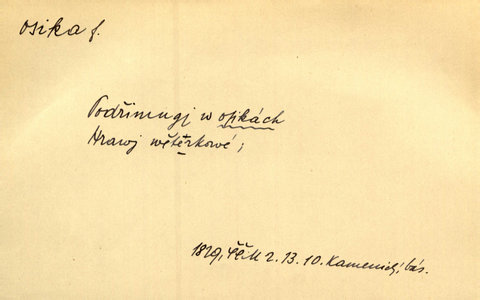 osika f.
Podřimugj w osikách
Hrawoj wětérkowé;
1829, ČČM 2. 13. 10. Kamenický, bás.